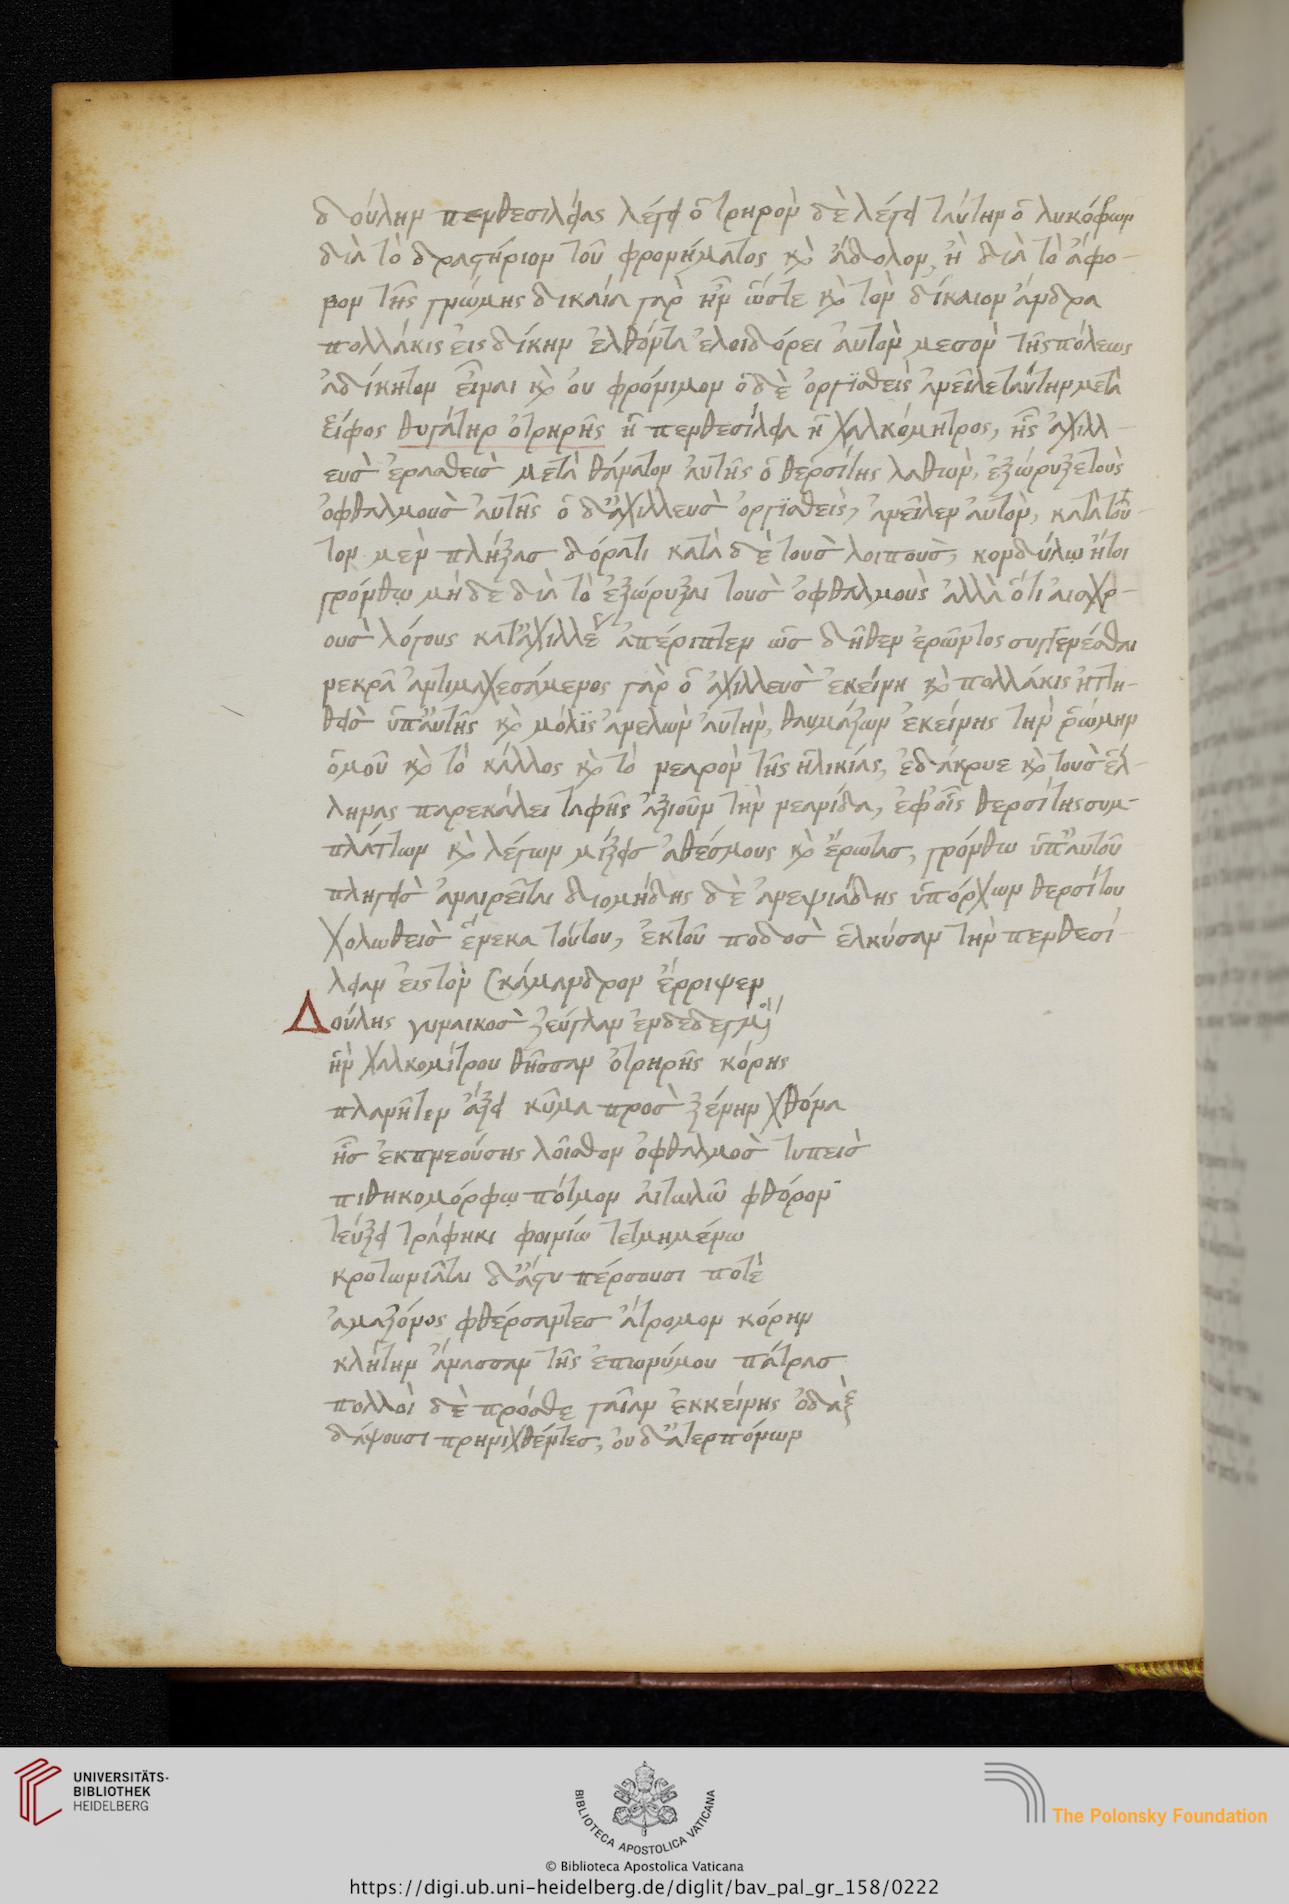 δούλην πενθεσιλείας λέγει ὀτρηρὸν δὲ λέγει ταύτην ὁ λυκόφρων
διὰ τὸ δραστήριον τοῦ φρονήματος καὶ ἄδολον, ἢ διὰ τὸ ἄφο-
βον τῆς γνώμης δικαία γὰρ ἦν ὥστε καὶ τὸν δίκαιον ἄνδρα
πολλάκις εἰς δίκην ἐλθόντα ἐλοιδόρει αὐτὸν μεσον τῆς πόλεως
ἀδίκητον εἶναι καὶ ου φρόνιμον ὁ δὲ ὀργϊσθεὶς ἀνεῖλε ταύτην μετὰ
ξίφος θυγάτηρ ὀτρηρῆς ἡ πενθεσίλεια ἡ χαλκόμητρος, ἧς ἀχιλλ-
ευσ ἐρασθεισ μετὰ θάνατον αὐτῆς ὁ θερσίτης λαθων, ἐξώρυξε τοὺς
ὀφθαλμουσ αὐτῆς ὁ δ' ἀχιλλευσ ὀργϊσθεὶς, ἀνεῖλεν αὐτὸν, κατὰ τοῦ-
τον μεν πλήξασ δόρατι κατὰ δὲ τουσ λοιπουσ, κονδύλῳ ἤτοι
γρόνθῳ μὴ δε διὰ τὸ ἐξώρυξαι τουσ ὀφθαλμοὺς ἀλλὰ ὅτι αἰσχρ-
ουσ λόγους κατ' ἀχιλλέως ἀπέριπτεν ὡς δῆθεν ἐρῶντος συγγενέσθαι
νεκρᾶ ἀντιμαχεσάμενος γὰρ ὁ ἀχιλλευσ ἐκείνη καὶ πολλάκις ἡττη-
θεὶσ ὑπ' αὐτῆς καὶ μόλϊς ἀνελὼν αὐτὴν, θαυμάζων ἐκείνης τὴν ῥώμην
ὁμοῦ καὶ τὸ κάλλος καὶ τὸ νεαρὸν τῆς ἡλικίας, ἐδάκρυε καὶ τουσ ἕλ-
ληνας παρεκάλει ταφῆς ἀξιοῦν τὴν νεανίδα, ἐφ' οἷς θερσίτης συμ-
πλάττων καὶ λέγων μίξεισ ἀθέσμους καὶ ἔρωτασ, γρόνθω ὑπ' αὐτοῦ
πληγεὶσ ἀναιρεῖται διομήδης δὲ ἀνεψιάδης ὑπάρχων θερσίτου
χολωθεισ ἕνεκα τούτου, ἐκ τοῦ ποδοσ ἑλκύσαν τὴν πενθεσί-
λειαν εἰς τὸν Σκάμανδρον ἔρριψεν
Δούλης γυναικοσ ζεύγλαν ἐνδεδεγμένοι
ἣν χαλκομίτρου θῆσσαν ὀτρηρῆς κόρης
πλανῆτιν ἄξει κῦμα προσ ξένην χθόνα
ἧσ ἐκπνεούσης λοῖσθον ὀφθαλμοσ τυπεισ
πιθηκομόρφῳ πότμον αἰτωλῶ φθόρον
τεύξει τράφηκι φοινίω τετμημένω
κροτωνιᾶται δ' ἄστυ πέρσουσι ποτὲ
ἀμαζόνος φθέρσαντεσ ἄτρομον κόρην
κλήτην ἄνασσαν τῆς ἐπωνύμου πάτρασ
πολλοὶ δὲ πρόσθε γαῖαν ἐκκείνης ὀδὰξ
δάψουσι πρηνιχθέντεσ, ου δ' ἄτερ πόνων
UNIVERSITÄTS-
BIBLIOTHEK
HEIDELBERG
BIBLIOTECA APOSTOLICA VATICANA
The Polonsky Foundation
© Biblioteca Apostolica Vaticana
https://digi.ub.uni-heidelberg.de/diglit/bav_pal_gr_158/0222